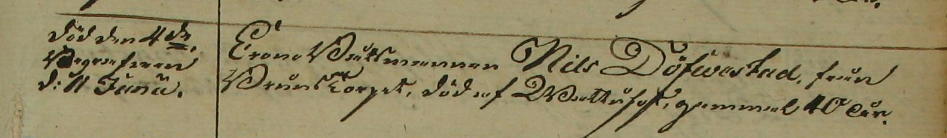 Död den 4de,
Begrafwen
d: 11 Junii.
Crono Båtsmannen Nils Döfwestad, från
död af Wattusot, gammal 40 år.